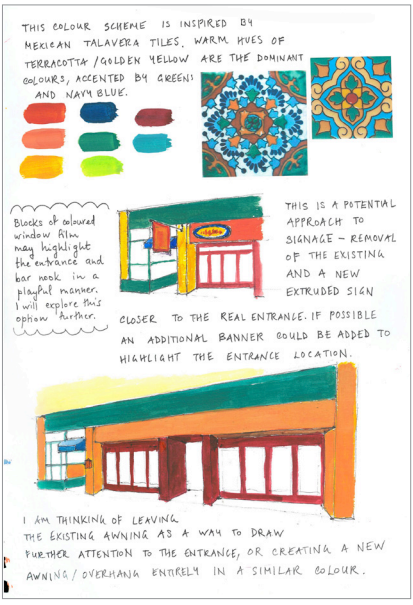 THIS COLOUR SCHEME IS INSPIRED BY
MEXICAN TALAVERA TILES. WARM HUES OF
TERRACOTTA/GOLDEN YELLOW ARE THE DOMINANT
COLOURS, ACCENTED BY GREENS
AND NAVY BLUE.
Blocks of coloured
window film
may highlight
the entrance and
bar nook in a
playful manner.
I will explore this
option further.
THIS IS A POTENTIAL
APPROACH TO
SIGNAGE – REMOVAL
OF THE EXISTING
AND A NEW
EXTRUDED SIGN
CLOSER TO THE REAL ENTRANCE. IF POSSIBLE
AN ADDITIONAL BANNER COULD BE ADDED TO
HIGHLIGHT THE ENTRANCE LOCATION.
I AM THINKING OF LEAVING
THE EXISTING AWNING AS A WAY TO DRAW
FURTHER ATTENTION TO THE ENTRANCE, OR CREATING A NEW
AWNING/OVERHANG ENTIRELY IN A SIMILAR COLOUR.